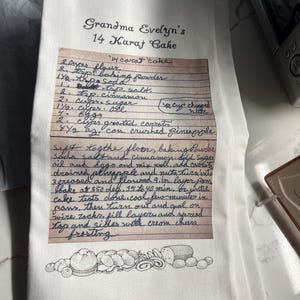 Grandma Evelyn's
14 Karat Cake
14 carat cake
2 cups flour
2 tsp. baking powder
1½ tsp soda
tsp salt
2 tsp. cinnamon
2 cups sugar
1½ cups oil
½ cup chopped nuts
4 eggs
2 cups grated carrots
1 8½ oz can crushed pineapple
Sift togthe flour, baking powder
soda, salt and cinnamon. add sugar
oil and eggs and mix well, add carrots
drained pineapple and nuts turn into
3 greased and floured 9 in layer pans
bake at 350 deg. 35 to 40 min. or until
cake tests done. cool few minutes in
pans, then turn out and cool on
wire racks. fill layers and spread
top and sides with cream cheese
frosting